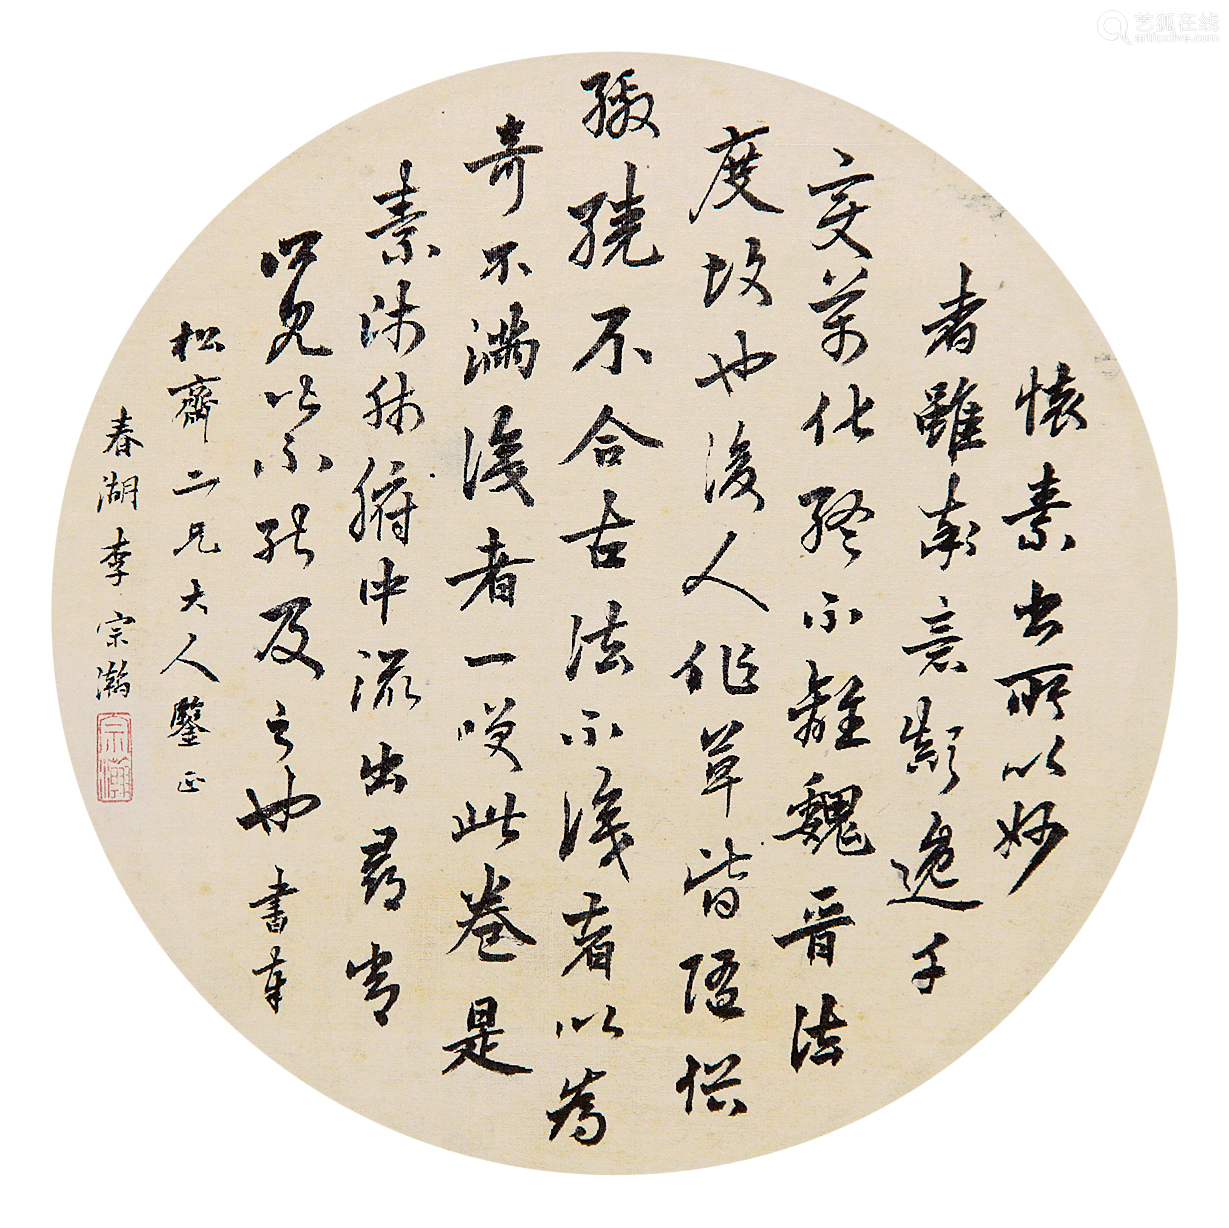 懷素書所以妙
者雖率意顛逸千
變萬化終不離魏晉法
度故也後人作草皆隨俗
繳繞不合古法不識者以為
奇不滿識者一笑此卷是
素師肺腑中流出尋常
所見皆不能及之也書奉
松齋二兄大人鑒正
春湖李宗瀚
宗瀚
艺狐在线
artfoxlive.com